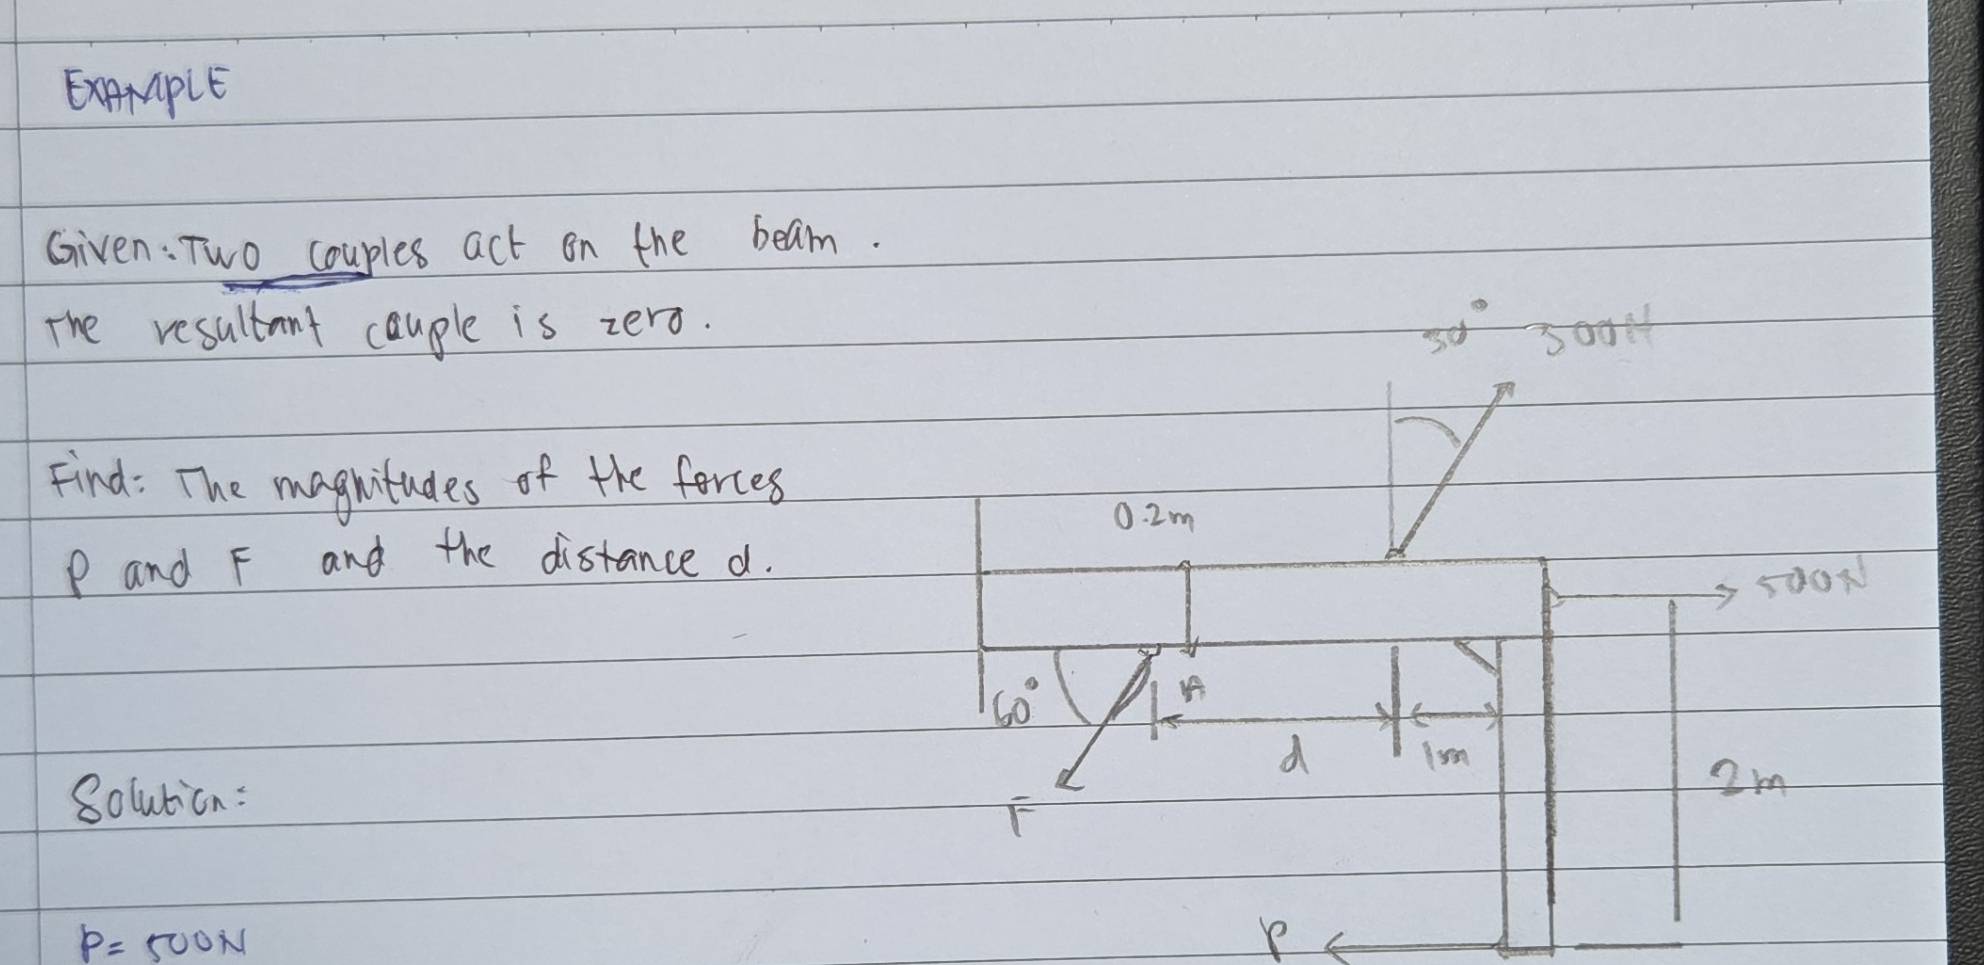 EXAMPLE
Given: Two couples act on the beam.
The resultant couple is zero.
30° 300N
Find: The magnitudes of the forces
P and F and the distance d.
0.2m
500N
60°
A
d
1m
2m
F
Solution:
P = 500N
P